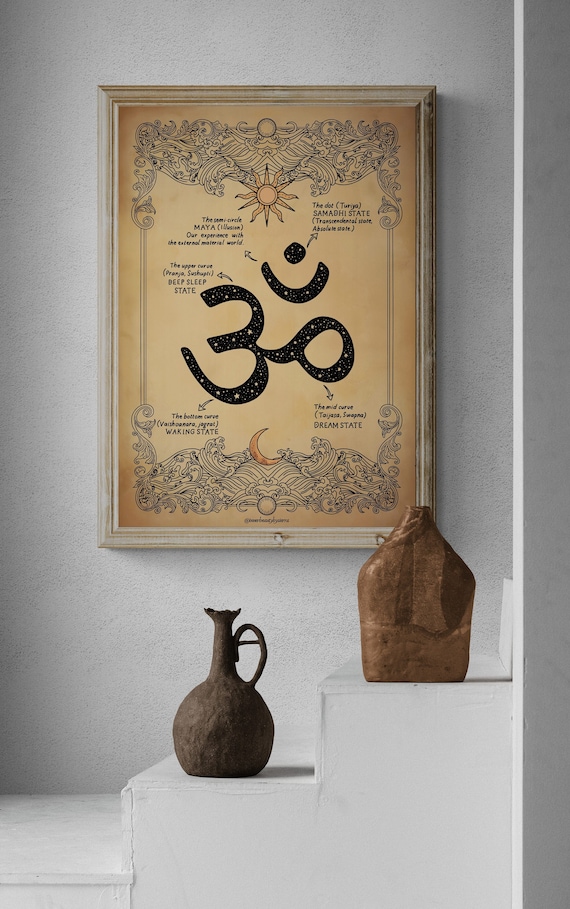 The dot (Turiya)
SAMADHI STATE
(Transcendental state,
Absolute state.)
The semi circle
MAYA (Illusion)
Our experience with
the external material world
The upper curve
(Pranja, Sushupti)
DEEP SLEEP
STATE
ॐ
The bottom curve
(Vaishvanara, jagrat)
WAKING STATE
The mid curve
(Taijasa, Swapna)
DREAM STATE